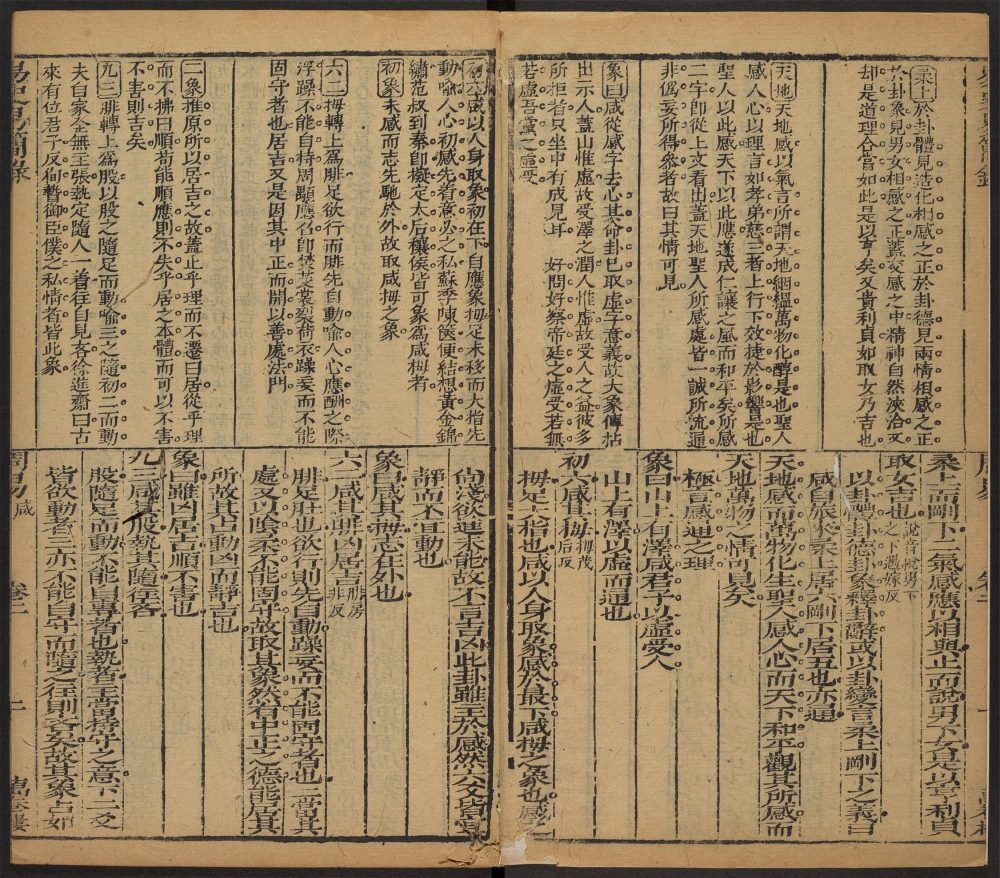 柔上於卦體見造化相感之正於卦德見兩情相感之正
於卦象見男女相感之正蓋交感之中精神自然浹洽又
却是道理合當如此是以吉矣又貴利貞如取女乃吉也
天地天地感以氣言所謂天地絪縕萬物化醇是也聖人
感人心以理言如孝弟慈三者上行下效捷於影響是也
聖人以此感天下以此應遂成仁讓之風而和平矣所感
二字卽從上文看出蓋天地聖人所感處皆一誠所流通
非僞妄所得參者故曰其情可見
象曰咸從感字去心其命卦已取虛字意義故大象傳拈
出示人蓋山惟虛故受澤之潤人惟虛故受人之益彼多
所拒者只坐中有成見耳 好問好察帝廷之虛受若無
若虛吾黨之虛受
柔上而剛下二氣感應以相與止而說男下女是以亨利貞
取女吉也 說音悅男下之下遐嫁反
以卦體卦德卦象釋卦辭或以卦變言柔上剛下之義曰
咸自旅來柔上居六剛下居五也亦通
天地感而萬物化生聖人感人心而天下和平觀其所感而
天地萬物之情可見矣
極言感通之理
象曰山上有澤咸君子以虛受人
山上有澤以虛而通也
初六咸其拇 拇茂后反
拇足大指也咸以人身取象感於最下咸拇之象也感之
初六咸以人身取象初在下自應象拇足未移而大指先
動喻人心初感先者意必之私蘇季陳篋便結想黃金錦
繡范叔到秦即擬定太后穰侯皆可象為咸拇者
初象未感而志先馳於外故取咸拇之象
六二拇轉上爲腓足欲行而腓先自動喻人心應酬之際
浮躁不能自持周顒應召即焚芰裳裂荷衣躁妄而不能
固守者也居吉又是因其中正而開以善處法門
二象推原所以居吉之故蓋止乎理而不遷曰居從乎理
而不拂曰順苟能順應則不失乎居之本體而可以不害
不害則吉矣
九三腓轉上爲股以股之隨足而動喻三之隨初二而動
夫自家全無主張執定隨人一着往自見吝徐進齋曰古
來有位君子反徇暬御臣僕之私情者皆此象
尚淺欲進未能故不言吉凶此卦雖主於感然六爻皆宜
靜而不宜動也
象曰咸其拇志在外也
六二咸其腓凶居吉 腓房非反
腓足肚也欲行則先自動躁妄而不能固守者也二當其
處又以陰柔不能固守故取其象然有中正之德能居其
所故其占動凶而靜吉也
象曰雖凶居吉順不害也
九三咸其股執其隨往吝
股隨足而動不能自專者也執者主當持守之意下二爻
皆欲動者三亦不能自守而隨之往則吝矣故其象占如
周易 咸 卷二